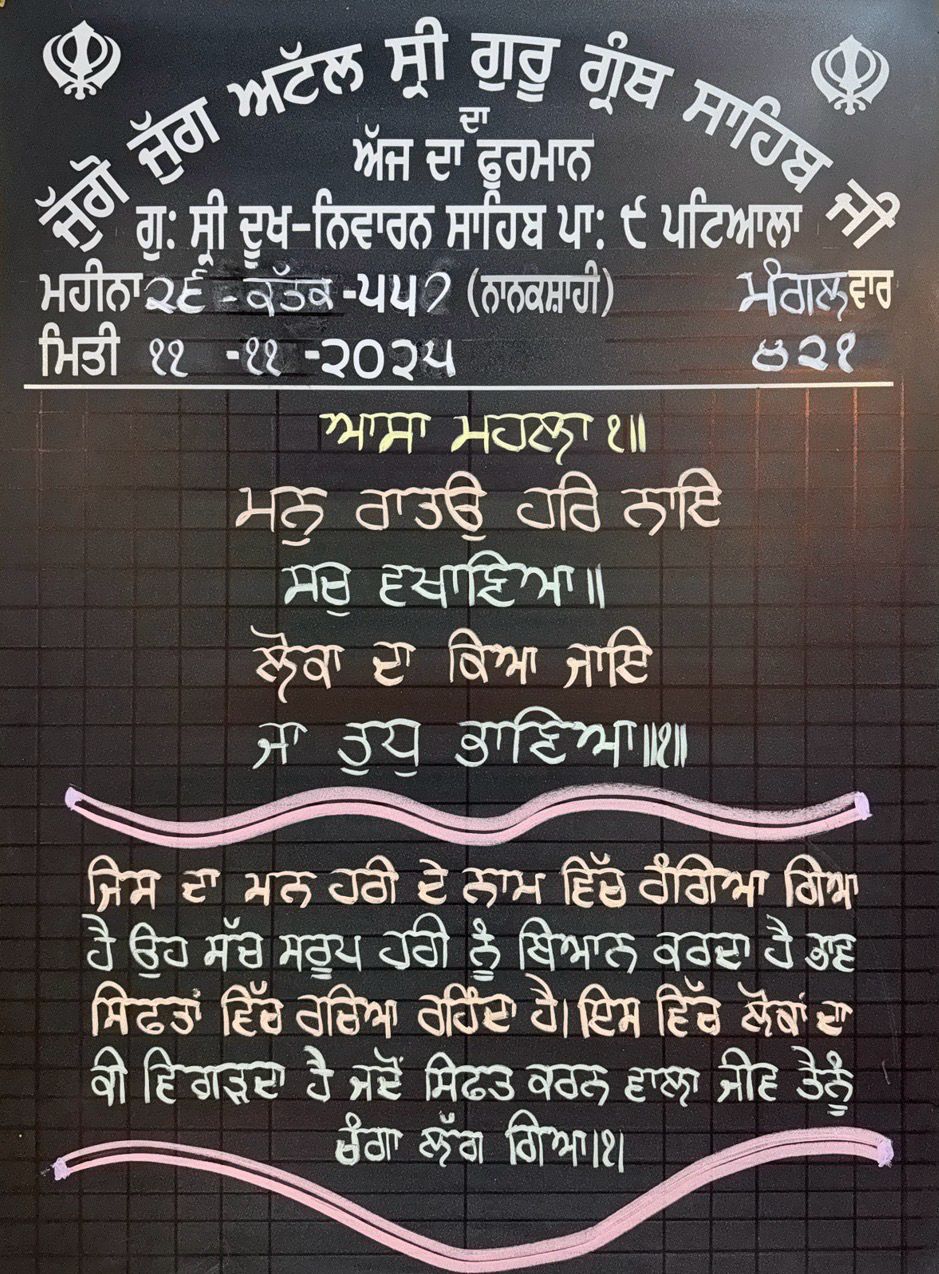 ਜੁੱਗੋ ਜੁੱਗ ਅਟੱਲ ਸ੍ਰੀ ਗੁਰੂ ਗ੍ਰੰਥ ਸਾਹਿਬ ਜੀ
ਦਾ
ਅੱਜ ਦਾ ਫੁਰਮਾਨ
ਗੁ: ਸ੍ਰੀ ਦੂਖ-ਨਿਵਾਰਨ ਸਾਹਿਬ ਪਾ: ੯ ਪਟਿਆਲਾ
ਮਹੀਨਾ ੨੬ - ਕੱਤਕ -੫੫੭ (ਨਾਨਕਸ਼ਾਹੀ) ਮੰਗਲਵਾਰ
ਮਿਤੀ ੧੧ -੧੧ -੨੦੨੫ ੭੨੧
ਆਸਾ ਮਹਲਾ ੧॥
ਮਨੁ ਰਾਤਉ ਹਰਿ ਨਾਇ
ਸਚੁ ਵਖਾਣਿਆ॥
ਲੋਕਾ ਦਾ ਕਿਆ ਜਾਇ
ਜਾ ਤੁਧੁ ਭਾਣਿਆ॥੧॥
ਜਿਸ ਦਾ ਮਨ ਹਰੀ ਦੇ ਨਾਮ ਵਿੱਚ ਰੰਗਿਆ ਗਿਆ
ਹੈ ਉਹ ਸੱਚ ਸਰੂਪ ਹਰੀ ਨੂੰ ਬਿਆਨ ਕਰਦਾ ਹੈ ਭਾਵ
ਸਿਫਤਾਂ ਵਿੱਚ ਰਚਿਆ ਰਹਿੰਦਾ ਹੈ। ਇਸ ਵਿੱਚ ਲੋਕਾਂ ਦਾ
ਕੀ ਵਿਗੜਦਾ ਹੈ ਜਦੋਂ ਸਿਫਤ ਕਰਨ ਵਾਲਾ ਜੀਵ ਤੈਨੂੰ
ਚੰਗਾ ਲੱਗ ਗਿਆ।੧।